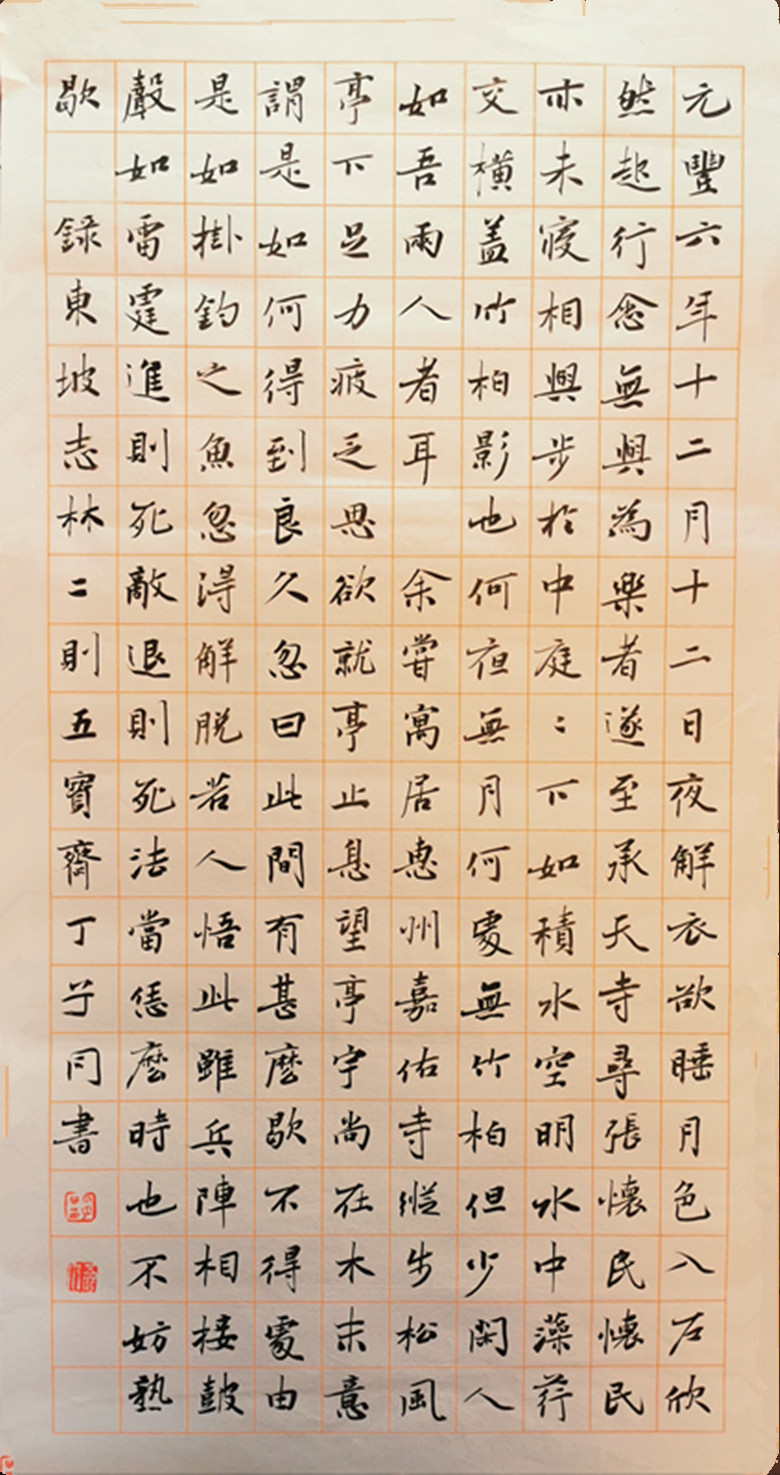 元豐六年十二月十二日夜解衣欲睡月色入户欣
然起行念無與為樂者遂至承天寺尋張懷民懷民
亦未寢相與步於中庭〻下如積水空明水中藻荇
交橫蓋竹柏影也何夜無月何處無竹柏但少閑人
如吾兩人者耳 余嘗寓居惠州嘉佑寺縱步松風
亭下足力疲乏思欲就亭止息望亭宇尚在木末意
謂是如何得到良久忽曰此間有甚麽歇不得處由
是如掛鈎之魚忽得解脱若人悟此雖兵陣相接鼓
聲如雷霆進則死敵退則死法當恁麽時也不妨熟
歇 録東坡志林二則五寶齊丁同書